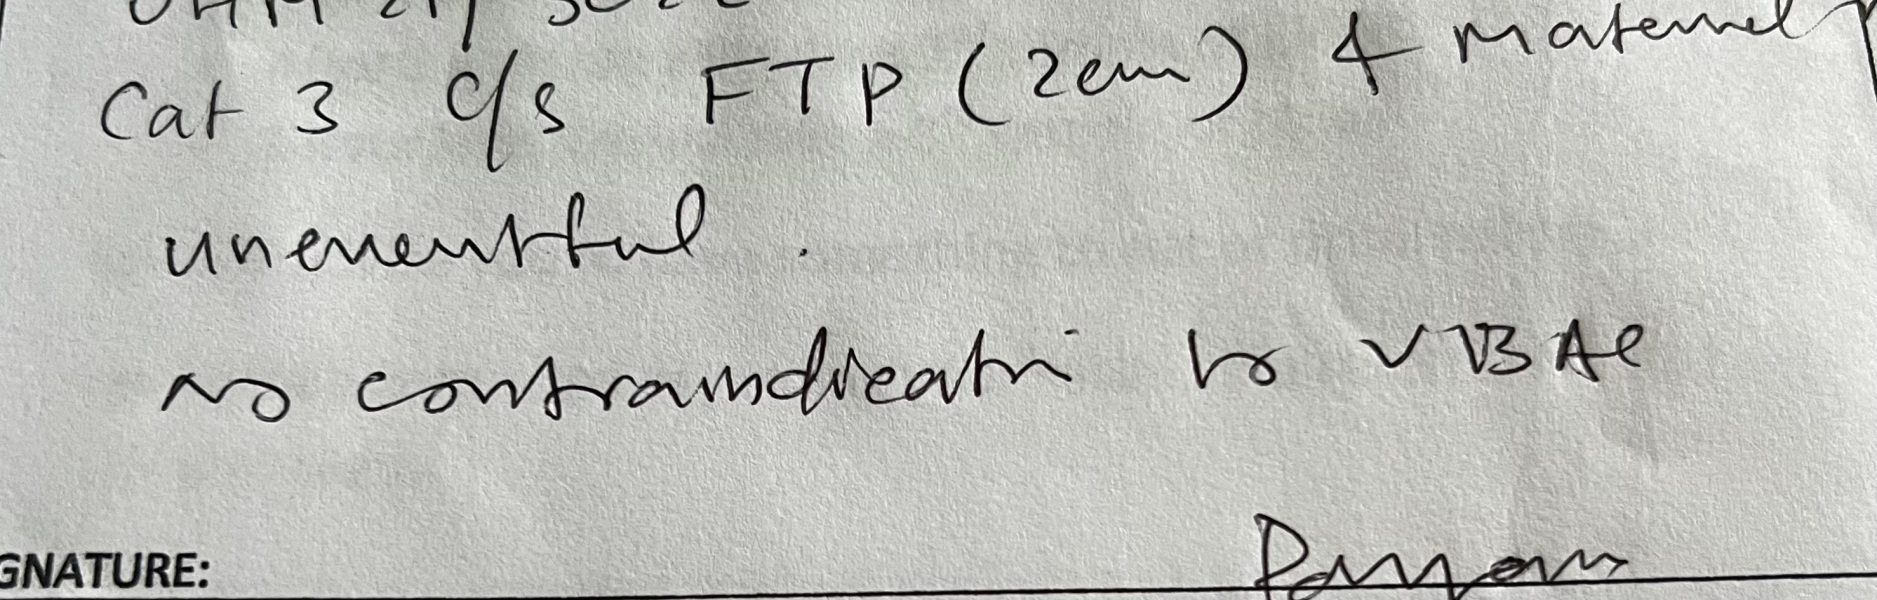 Cat 3 c/s FTP (2cm) & maternal
uneventful.
no contraindicatn to VBAC
GNATURE: